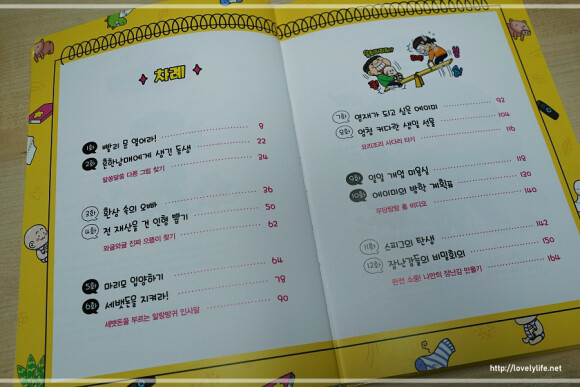 차례
1화 빨리 문 열어라! 8
2화 흔한남매에게 생긴 동생 22
알쏭달쏭 다른 그림 찾기 34
3화 환상 속의 오빠 36
4화 전 재산을 건 인형 뽑기 50
와글와글 진짜 으뜸이 찾기 62
5화 마리모 입양하기 64
6화 세뱃돈을 지켜라! 78
세뱃돈을 부르는 말랑방귀 인사말 90
7화 영재가 되고 싶은 에이미 92
8화 엄청 커다란 생일 선물 104
요리조리 사다리 타기 116
9화 일일 개업 미용실 118
10화 에이미의 방학 계획표 130
우당탕탕 홈 비디오 140
11화 스피그의 탄생 142
12화 장난감들의 비밀회의 150
완전 소중! 나만의 장난감 만들기 164
http://lovelylife.net